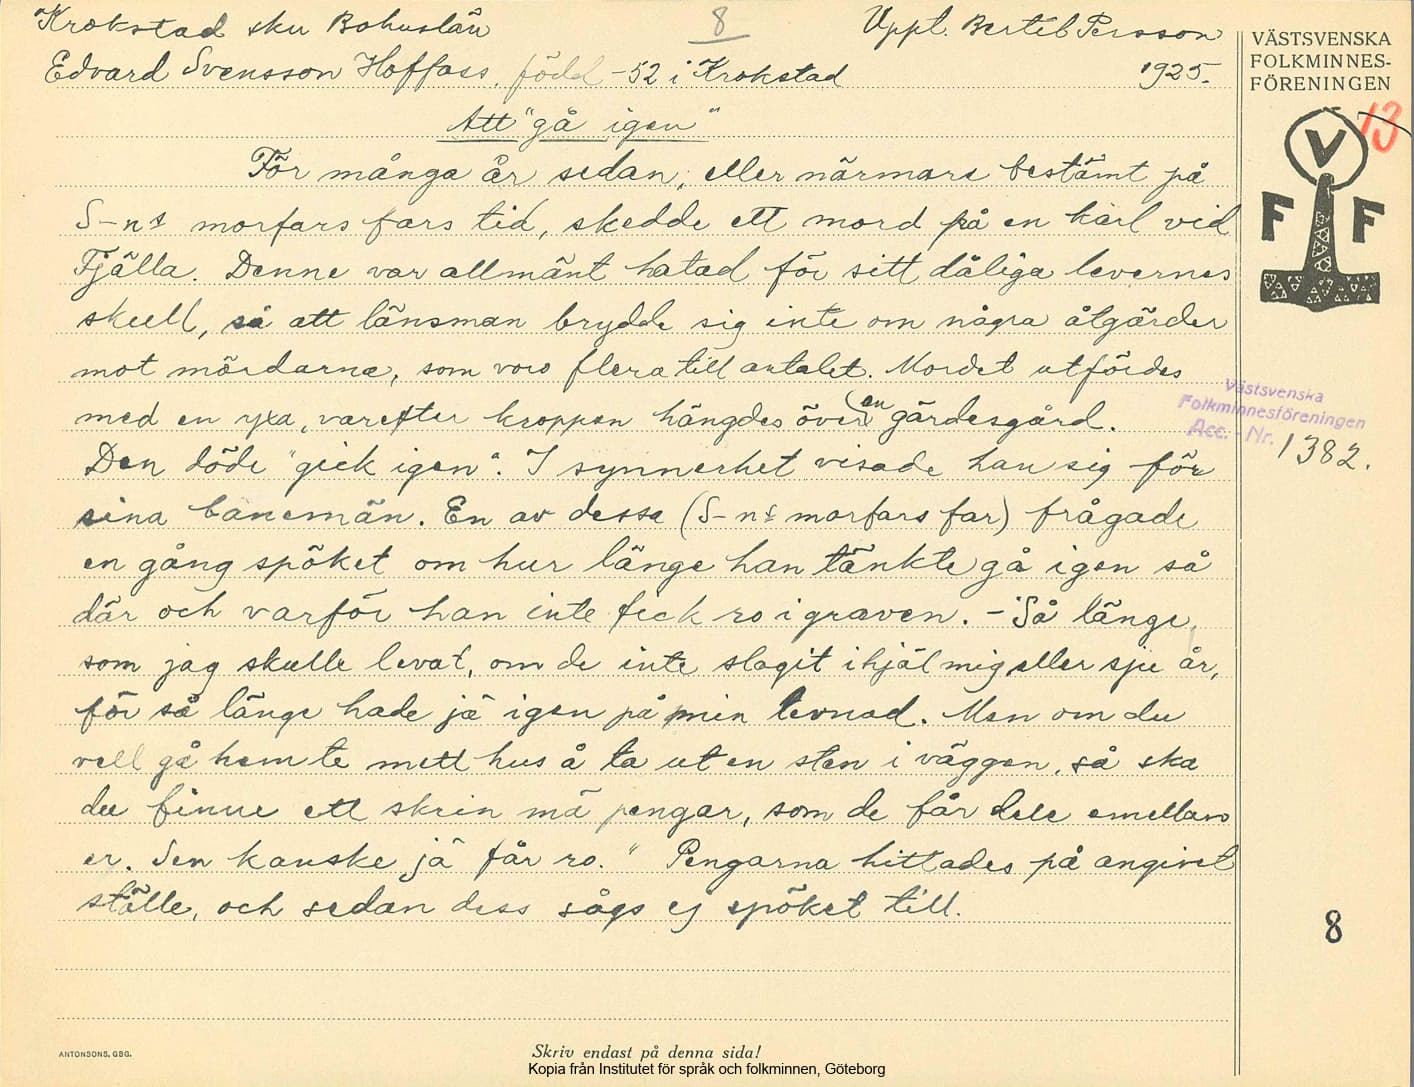 Krokstad sku Bohuslän
8
Uppt. Bertil Persson
Edvard Svensson Hoffass, född -52 i Krokstad
1925.
VÄSTSVENSKA
FOLKMINNES-
FÖRENINGEN
13
V
F F
Att "gå igen"
För många år sedan, eller närmare bestämt på
S-ns morfars fars tid, skedde ett mord på en karl vid
Fjälla. Denne var allmänt hatad för sitt dåliga levernes
skull, så att länsman brydde sig inte om några åtgärder
mot mördarna, som voro flera till antalet. Mordet utfördes
med en yxa, varefter kroppen hängdes över en gärdesgård.
Den döde "gick igen". I synnerhet visade han sig för
sina banemän. En av dessa (S-ns morfars far) frågade
en gång spöket om hur länge han tänkte gå igen så
där och varför han inte fick ro i graven. - "Så länge,
som jag skulle levat, om de inte slagit ihjäl mig eller sju år,
för så länge hade jä igen på min levnad. Men om du
vell gå hem te mett hus å ta ut en sten i väggen, så ska
du finne ett skrin mä pengar, som de får dele emellan
er. Sen kanske jä får ro." Pengarna hittades på angivet
ställe, och sedan dess sågs ej spöket till.
Västsvenska
Folkminnesföreningen
Acc. - Nr. 1382.
8
ANTONSONS, GBG.
Skriv endast på denna sida!
Kopia från Institutet för språk och folkminnen, Göteborg